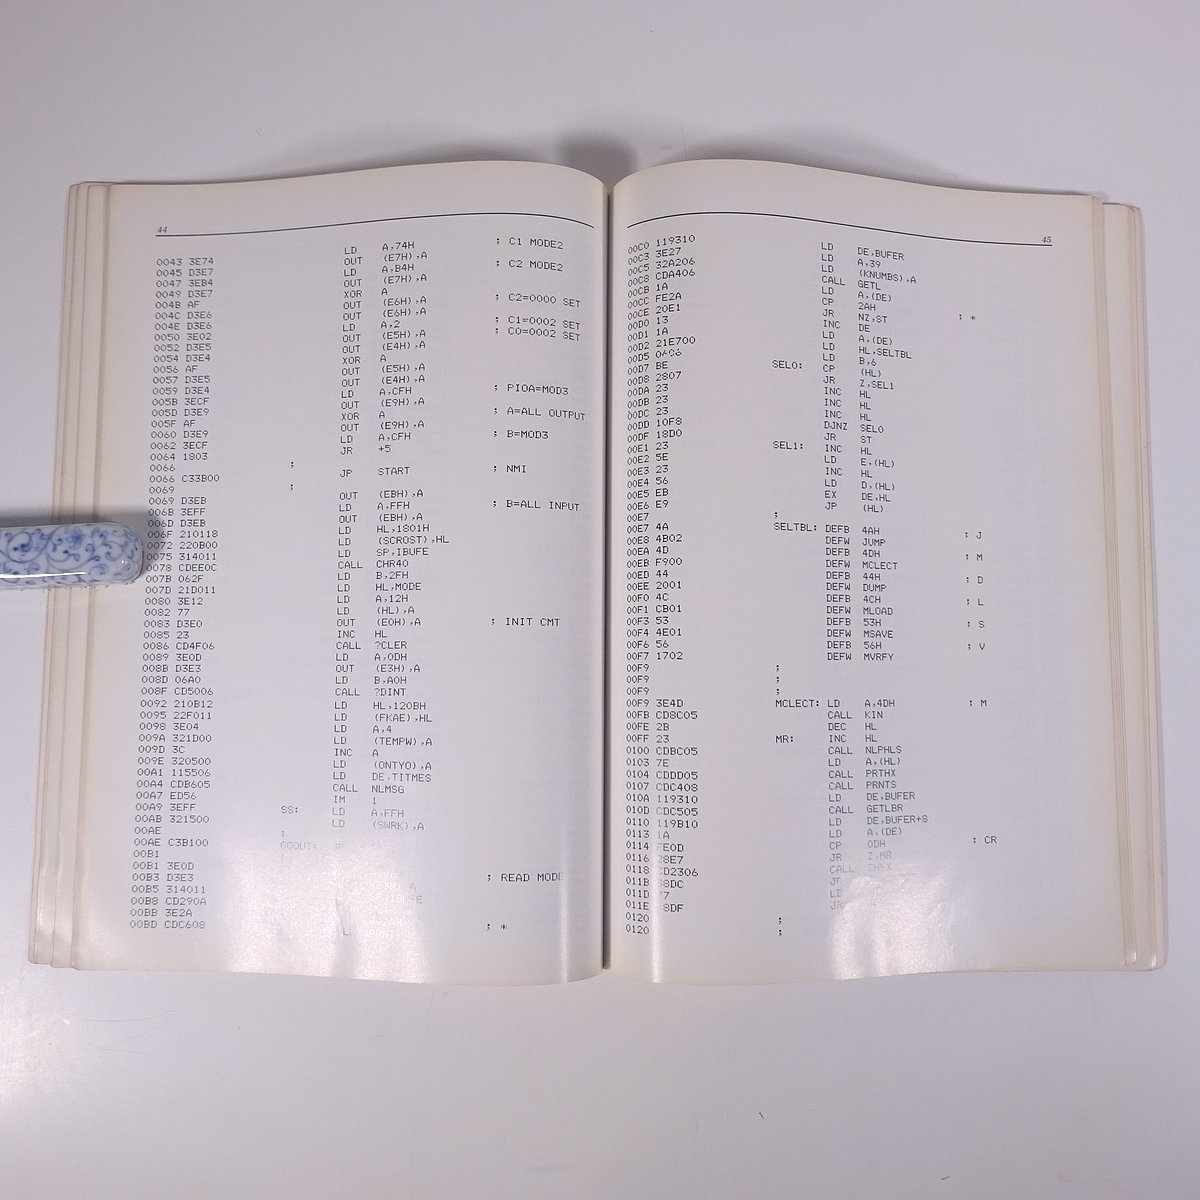 44
0043 3E74 LD A,74H ; C1 MODE2
0045 D3E7 OUT (E7H),A
0047 3EB4 LD A,B4H ; C2 MODE2
0049 D3E7 OUT (E7H),A
004B AF XOR A
004C D3E6 OUT (E6H),A ; C2=0000 SET
004E D3E6 OUT (E6H),A
0050 3E02 LD A,2 ; C1=0002 SET
0052 D3E5 OUT (E5H),A ; C0=0002 SET
0054 D3E4 OUT (E4H),A
0056 AF XOR A
0057 D3E5 OUT (E5H),A
0059 D3E4 OUT (E4H),A
005B 3ECF LD A,CFH ; PIOA=MOD3
005D D3E9 OUT (E9H),A
005F AF XOR A ; A=ALL OUTPUT
0060 D3E9 OUT (E9H),A
0062 3ECF LD A,CFH ; B=MOD3
0064 1803 JR +5
0066 ;
0066 C33B00 JP START ; NMI
0069 ;
0069 D3EB OUT (EBH),A
006B 3EFF LD A,FFH ; B=ALL INPUT
006D D3EB OUT (EBH),A
006F 210118 LD HL,1801H
0072 220B00 LD (SCROST),HL
0075 314011 LD SP,IBUFE
0078 CDEE0C CALL CHR40
007B 062F LD B,2FH
007D 21D011 LD HL,MODE
0080 3E12 LD A,12H
0082 77 LD (HL),A
0083 D3E0 OUT (E0H),A ; INIT CMT
0085 23 INC HL
0086 CD4F06 CALL ?CLER
0089 3E0D LD A,0DH
008B D3E3 OUT (E3H),A
008D 06A0 LD B,A0H
008F CD5006 CALL ?DINT
0092 210B12 LD HL,120BH
0095 22F011 LD (FKAE),HL
0098 3E04 LD A,4
009A 321D00 LD (TEMPW),A
009D 3C INC A
009E 320500 LD (ONTYO),A
00A1 115506 LD DE,TITMES
00A4 CDB605 CALL NLMSG
00A7 ED56 IM 1
00A9 3EFF SS: LD A,FFH
00AB 321500 LD (SWRK),A
00AE ;
00AE C3B100 GOOUT: JP
00B1
00B1 3E0D
00B3 D3E3 ; READ MODE
00B5 314011
00B8 CD290A
00BB 3E2A
00BD CDC608 ; *
45
00C0 119310 LD DE,BUFER
00C3 3E27 LD A,39
00C5 32A206 LD (KNUMBS),A
00C8 CDA406 CALL GETL
00CB 1A LD A,(DE)
00CC FE2A CP 2AH
00CE 20E1 JR NZ,ST ; *
00D0 13 INC DE
00D1 1A LD A,(DE)
00D2 21E700 LD HL,SELTBL
00D5 0606 LD B,6
00D7 BE SEL0: CP (HL)
00D8 2807 JR Z,SEL1
00DA 23 INC HL
00DB 23 INC HL
00DC 23 INC HL
00DD 10F8 DJNZ SEL0
00DF 18D0 JR ST
00E1 23 SEL1: INC HL
00E2 5E LD E,(HL)
00E3 23 INC HL
00E4 56 LD D,(HL)
00E5 EB EX DE,HL
00E6 E9 JP (HL)
00E7 ;
00E7 4A SELTBL: DEFB 4AH ; J
00E8 4B02 DEFW JUMP
00EA 4D DEFB 4DH ; M
00EB F900 DEFW MCLECT
00ED 44 DEFB 44H ; D
00EE 2001 DEFW DUMP
00F0 4C DEFB 4CH ; L
00F1 CB01 DEFW MLOAD
00F3 53 DEFB 53H ; S
00F4 4E01 DEFW MSAVE
00F6 56 DEFB 56H ; V
00F7 1702 DEFW MVRFY
00F9 ;
00F9 ;
00F9 ;
00F9 3E4D MCLECT: LD A,4DH ; M
00FB CD8C05 CALL KIN
00FE 2B DEC HL
00FF 23 MR: INC HL
0100 CDBC05 CALL NLPHLS
0103 7E LD A,(HL)
0104 CDDD05 CALL PRTHX
0107 CDC408 CALL PRNTS
010A 119310 LD DE,BUFER
010D CDC505 CALL GETLBR
0110 119B10 LD DE,BUFER+8
0113 1A LD A,(DE)
0114 FE0D CP 0DH ; CR
0116 28E7 JR Z,MR
0118 CD2306 CALL 2HEX
011B 38DC JR
011D 77 LD
011E 18DF JR
0120 ;
0120 ;